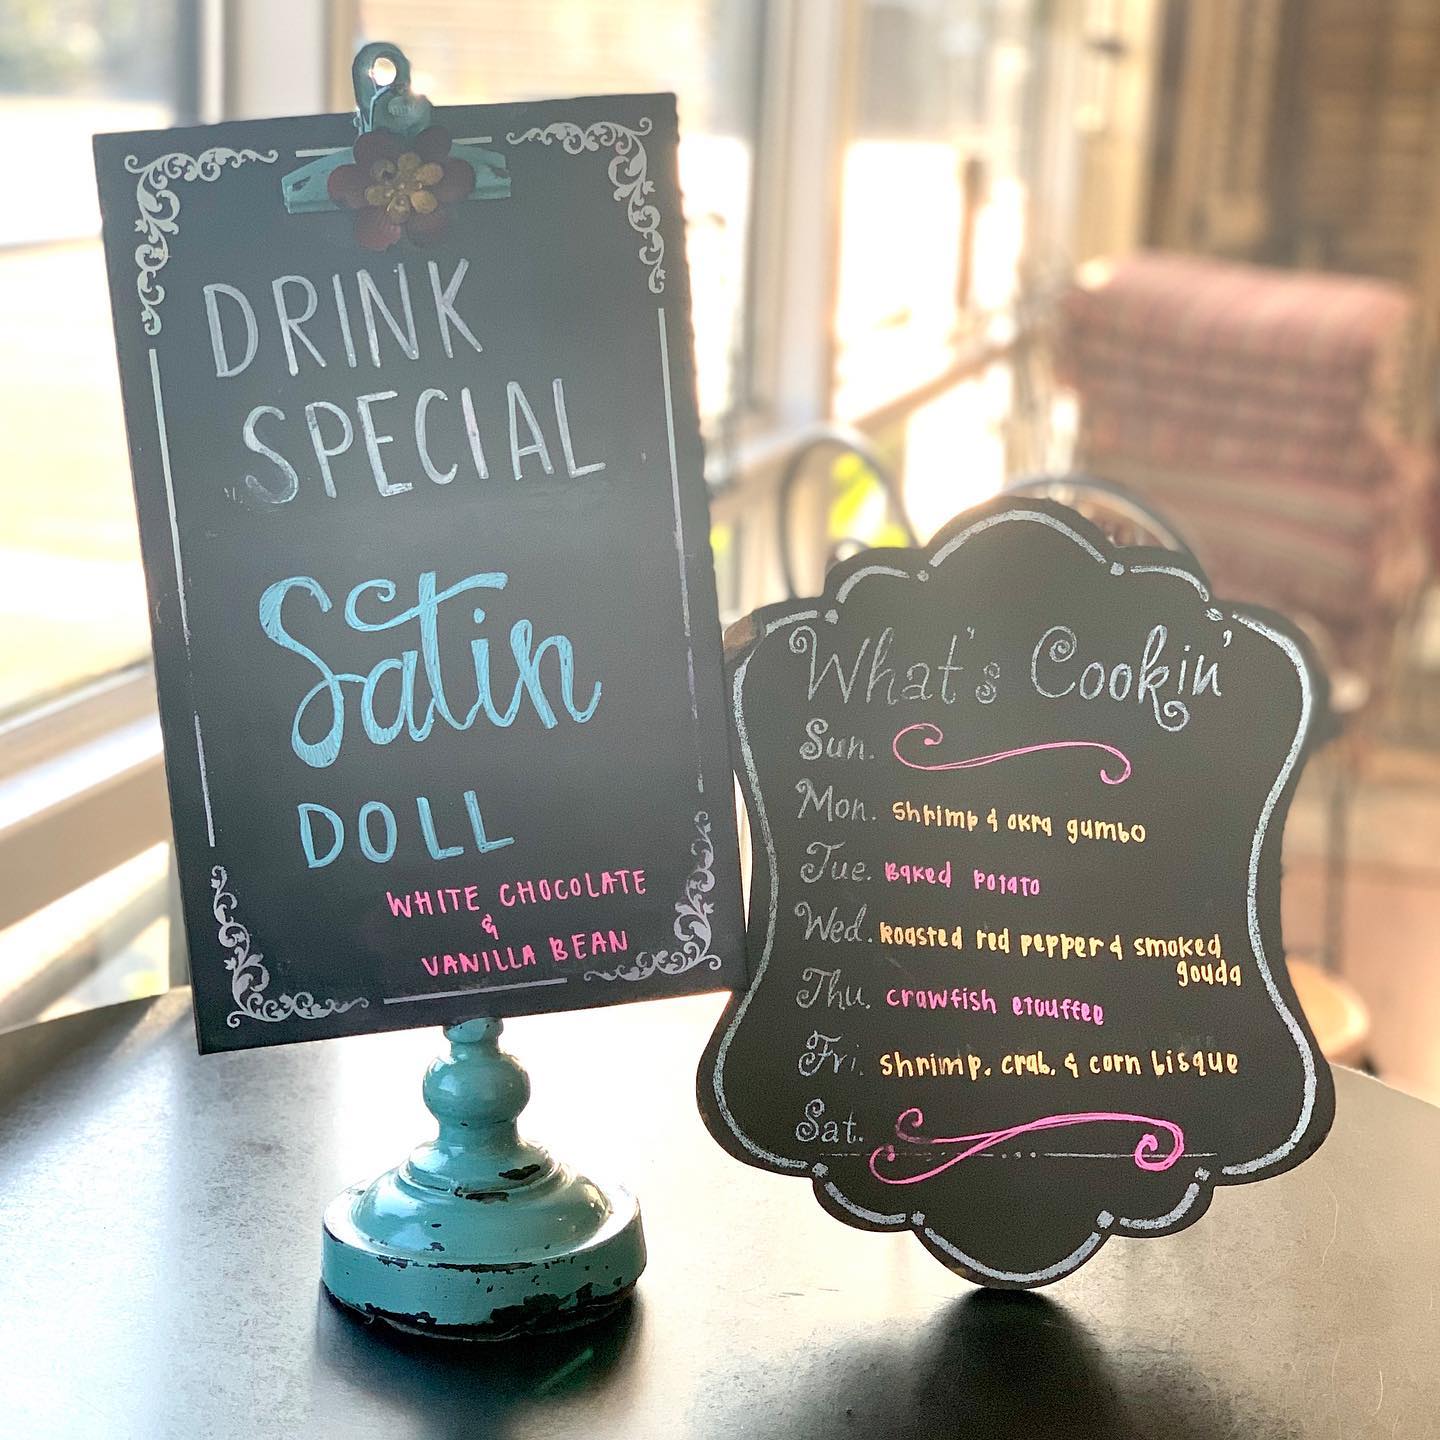 DRINK
SPECIAL
Satin
DOLL
WHITE CHOCOLATE
&
VANILLA BEAN
What's Cookin'
Sun.
Mon. Shrimp & okra gumbo
Tue. Baked Potato
Wed. Roasted red pepper & smoked
gouda
Thu. Crawfish etouffee
Fri. Shrimp, crab, & corn bisque
Sat.